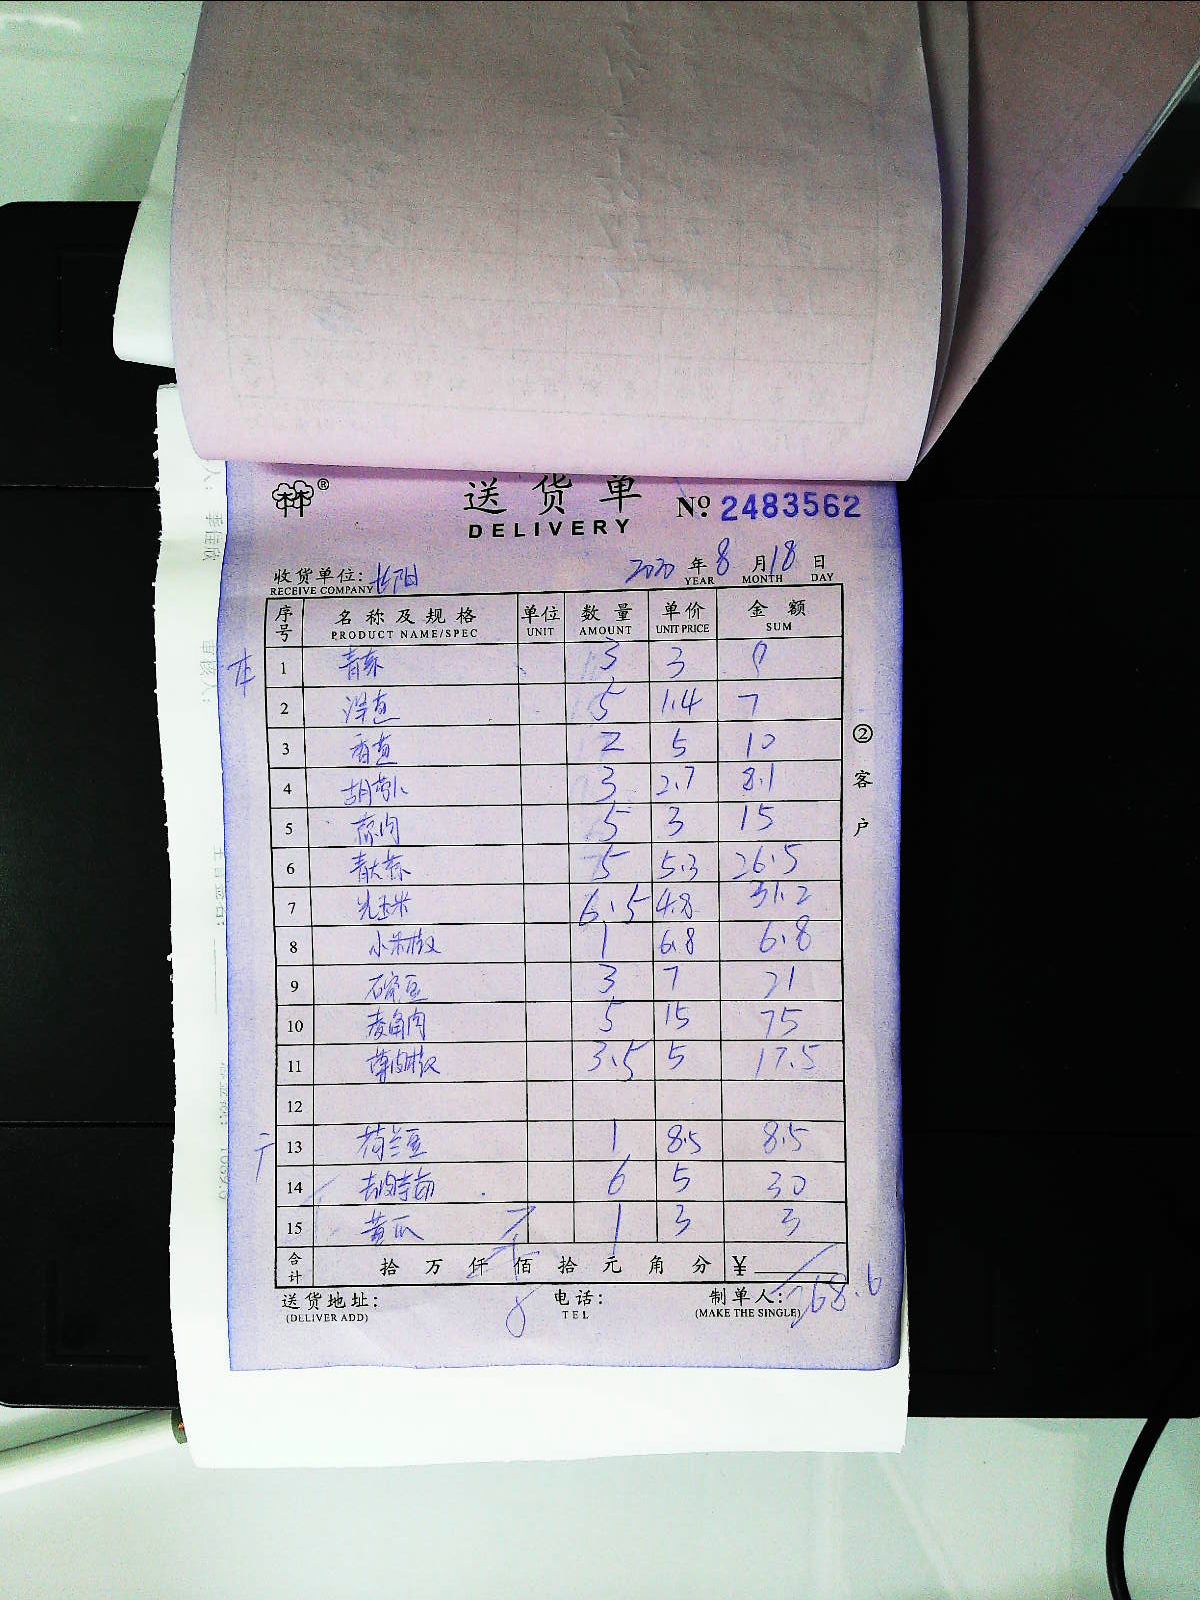 送货单
DELIVERY
№ 2483562
收货单位: 长阳
RECEIVE COMPANY
2020 年 8 月 18 日
YEAR MONTH DAY
序号 名称及规格 单位 数量 单价 金额
PRODUCT NAME/SPEC UNIT AMOUNT UNIT PRICE SUM
1 3 3 9
2 洋芋 5 1.4 7
3 2 5 10
4 胡萝卜 3 2.7 8.1
5 5 3 15
6 5 5.3 26.5
7 玉米 6.5 4.8 31.2
8 小米椒 1 6.8 6.8
9 豆 3 7 21
10 角肉 5 15 75
11 薄皮椒 3.5 5 17.5
12
13 荷兰豆 1 8.5 8.5
14 6 5 30
15 黄瓜 1 3 3
合计 拾 万 仟 佰 拾 元 角 分 ¥
268.6
送货地址: 电话: 制单人:
(DELIVER ADD) TEL (MAKE THE SINGLE)
② 客户